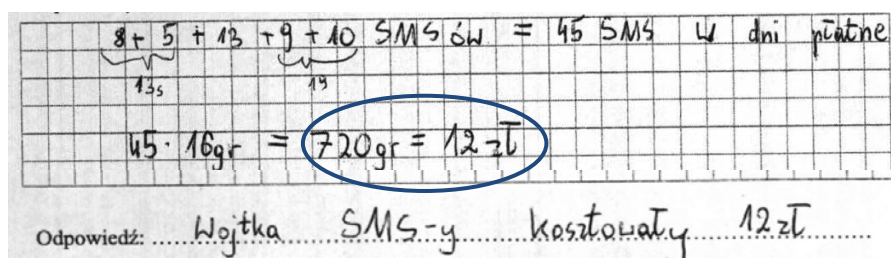 8 + 5 + 13 + 9 + 10 SMSów = 45 SMS w dni płatne
13s 19
45 · 16gr = 720gr = 12 zł
Odpowiedź: Wojtka SMS-y kosztowały 12 zł